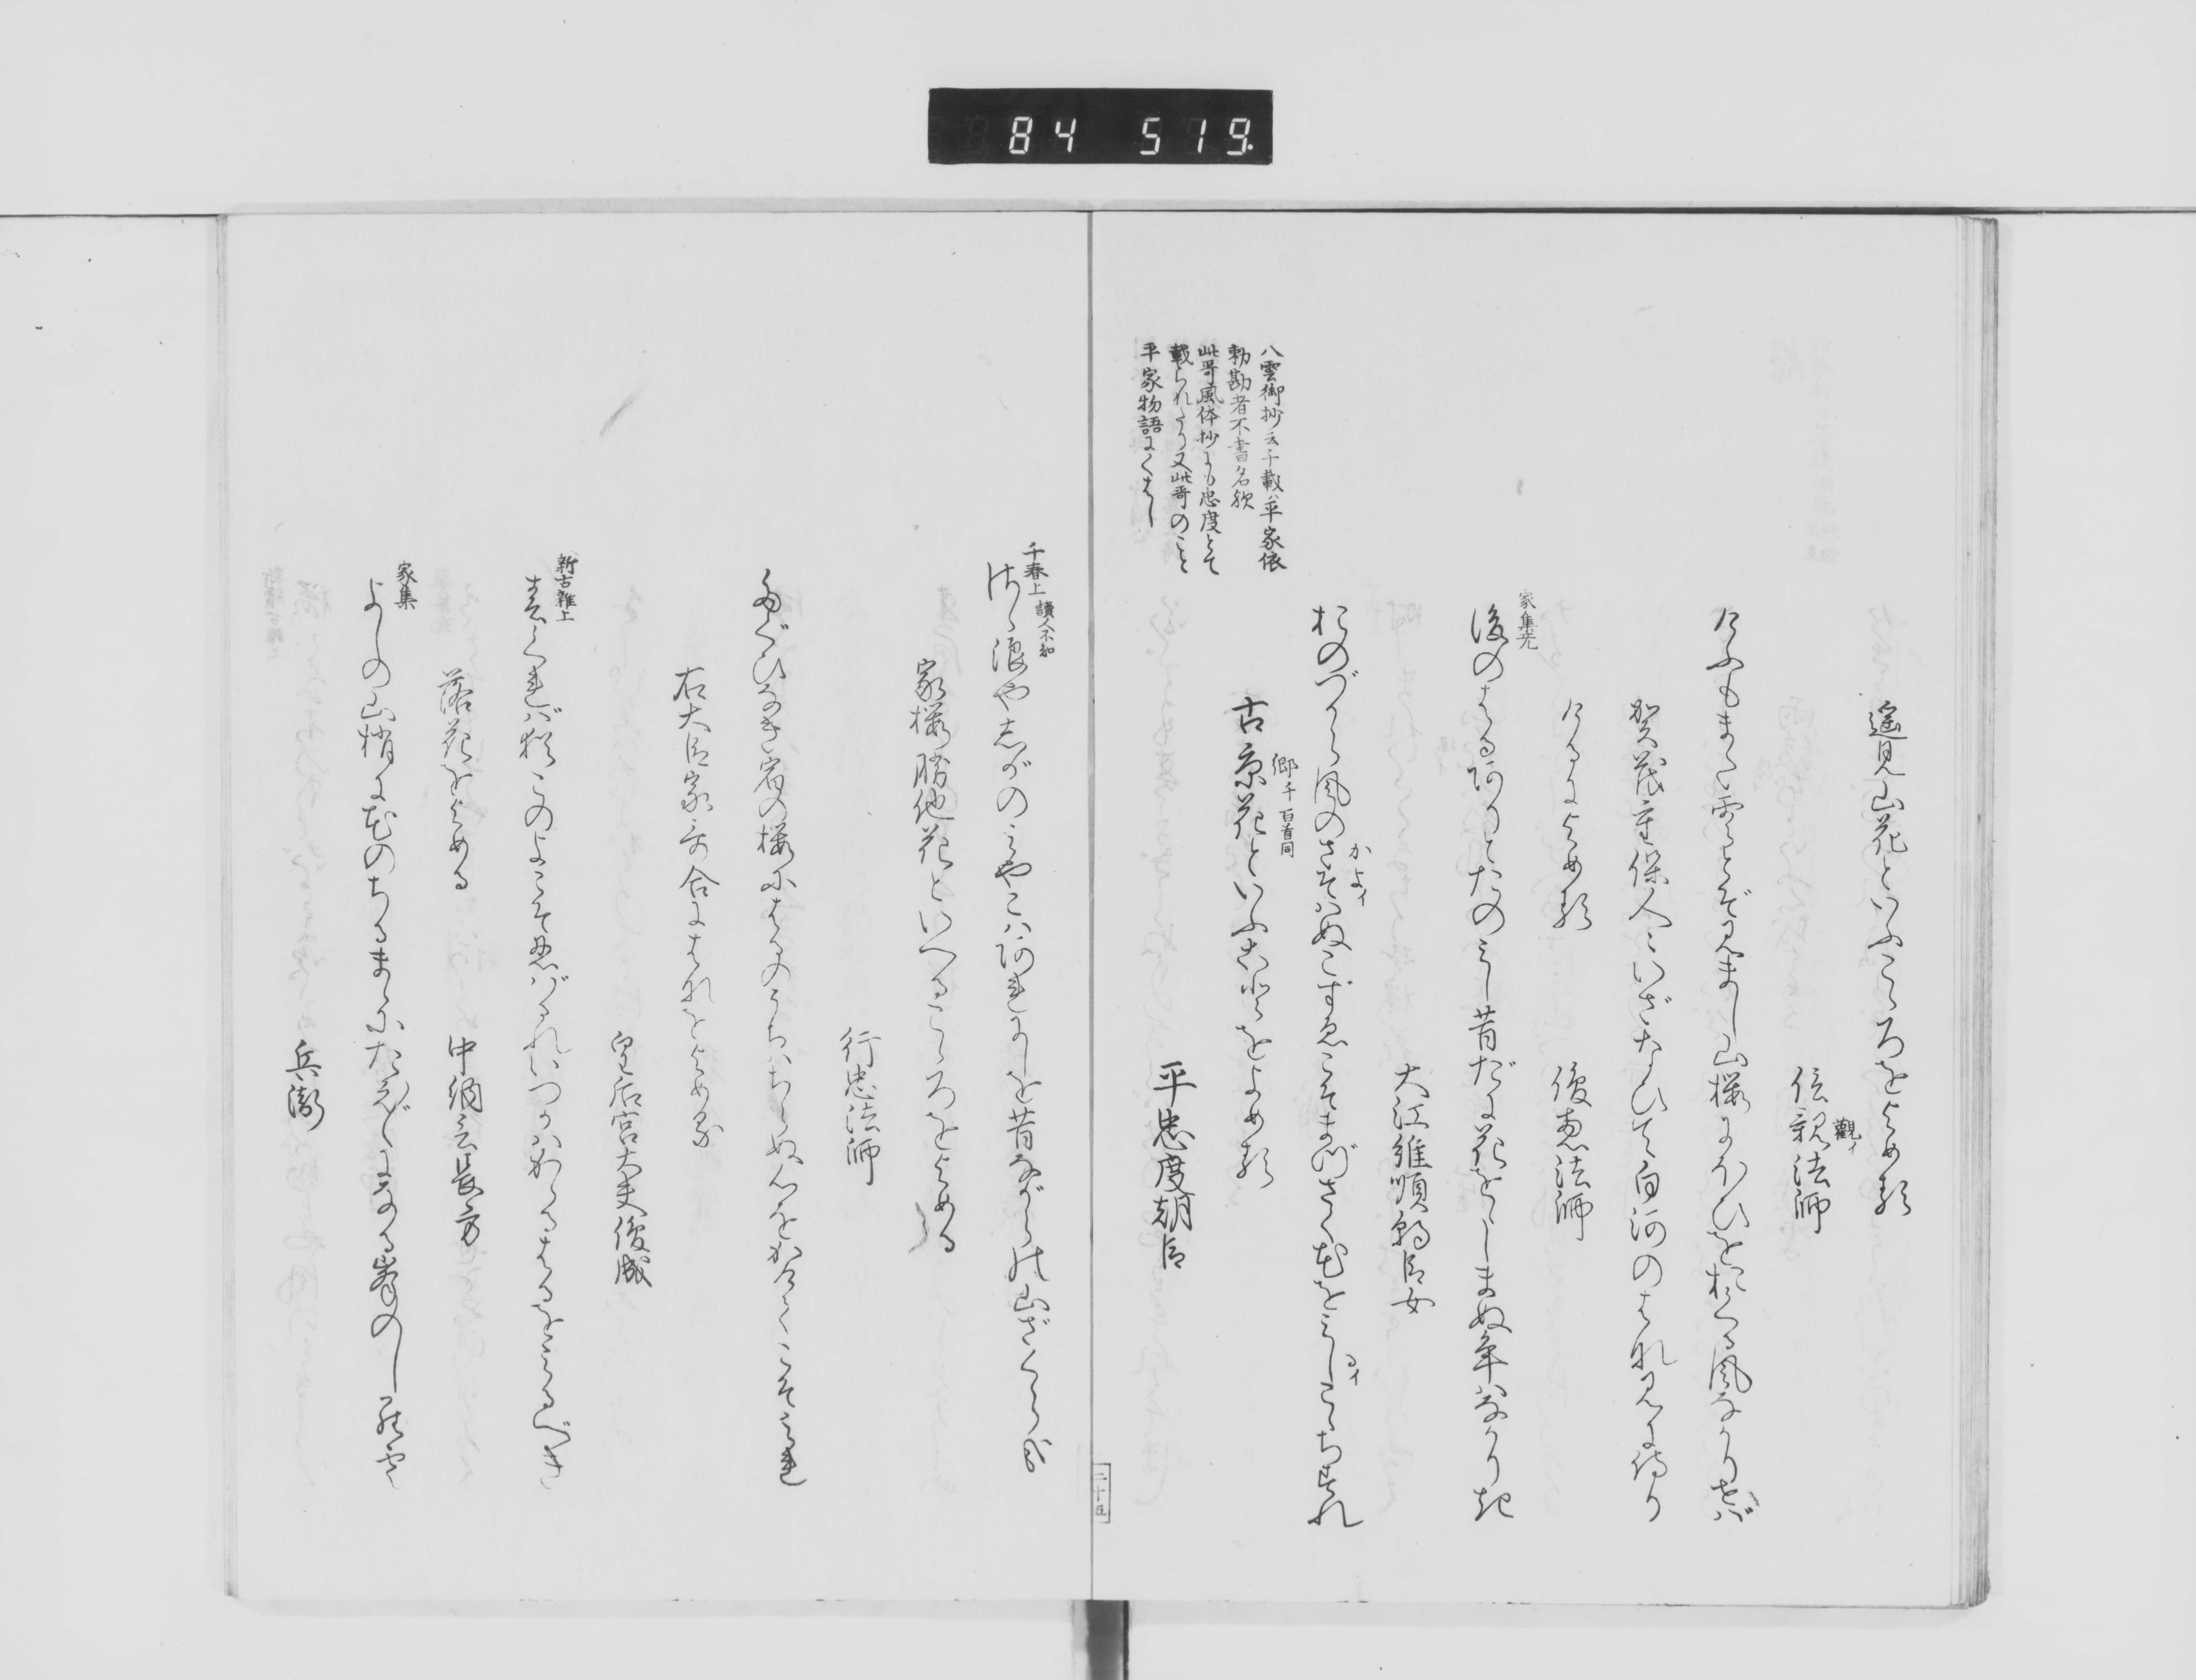 84 519
遥見山花といふこゝろをよめる
伝親法師
觀イ
けふもまた雲とぞ見まし山桜よにほひをおくる風なかりせば
賀茂重保人ゝいざなひて白河のはな見に侍り
けるによめる
俊恵法師
家集
後のはるありとたのみし昔だに花をゝしまぬ年はなかりき
大江維順朝臣女
おのづから風のさそはぬこずゑこそまづさく花をみしこゝちすれ
かよイ
るイ
古京花といふ心をよめる
郷千 百首同
平忠度朝臣
八雲御抄云千載ハ平家依
勅勘者不書名歟
此哥風体抄にも忠度とて
載られたり又此哥のこと
平家物語にくはし
二十五
千春上 讀人不知
さゝ浪や志がのみやこハあれにしを昔ながらの山ざくらかな
家桜勝他花といへるこゝろをよめる
行忠法師
たぐひなき宿の桜にはるのうちハちらぬ心をかけてこそみれ
右大臣家哥合にはなをよめる
皇后宮大夫俊成
新古雜上
春くればなほこのよこそ忍ばるれいつかハかゝるはるをみるべき
落花をよめる
中納言長方
家集
よしの山梢に花のちるまゝにたえ〴〵になる峯のしら雲
兵衛